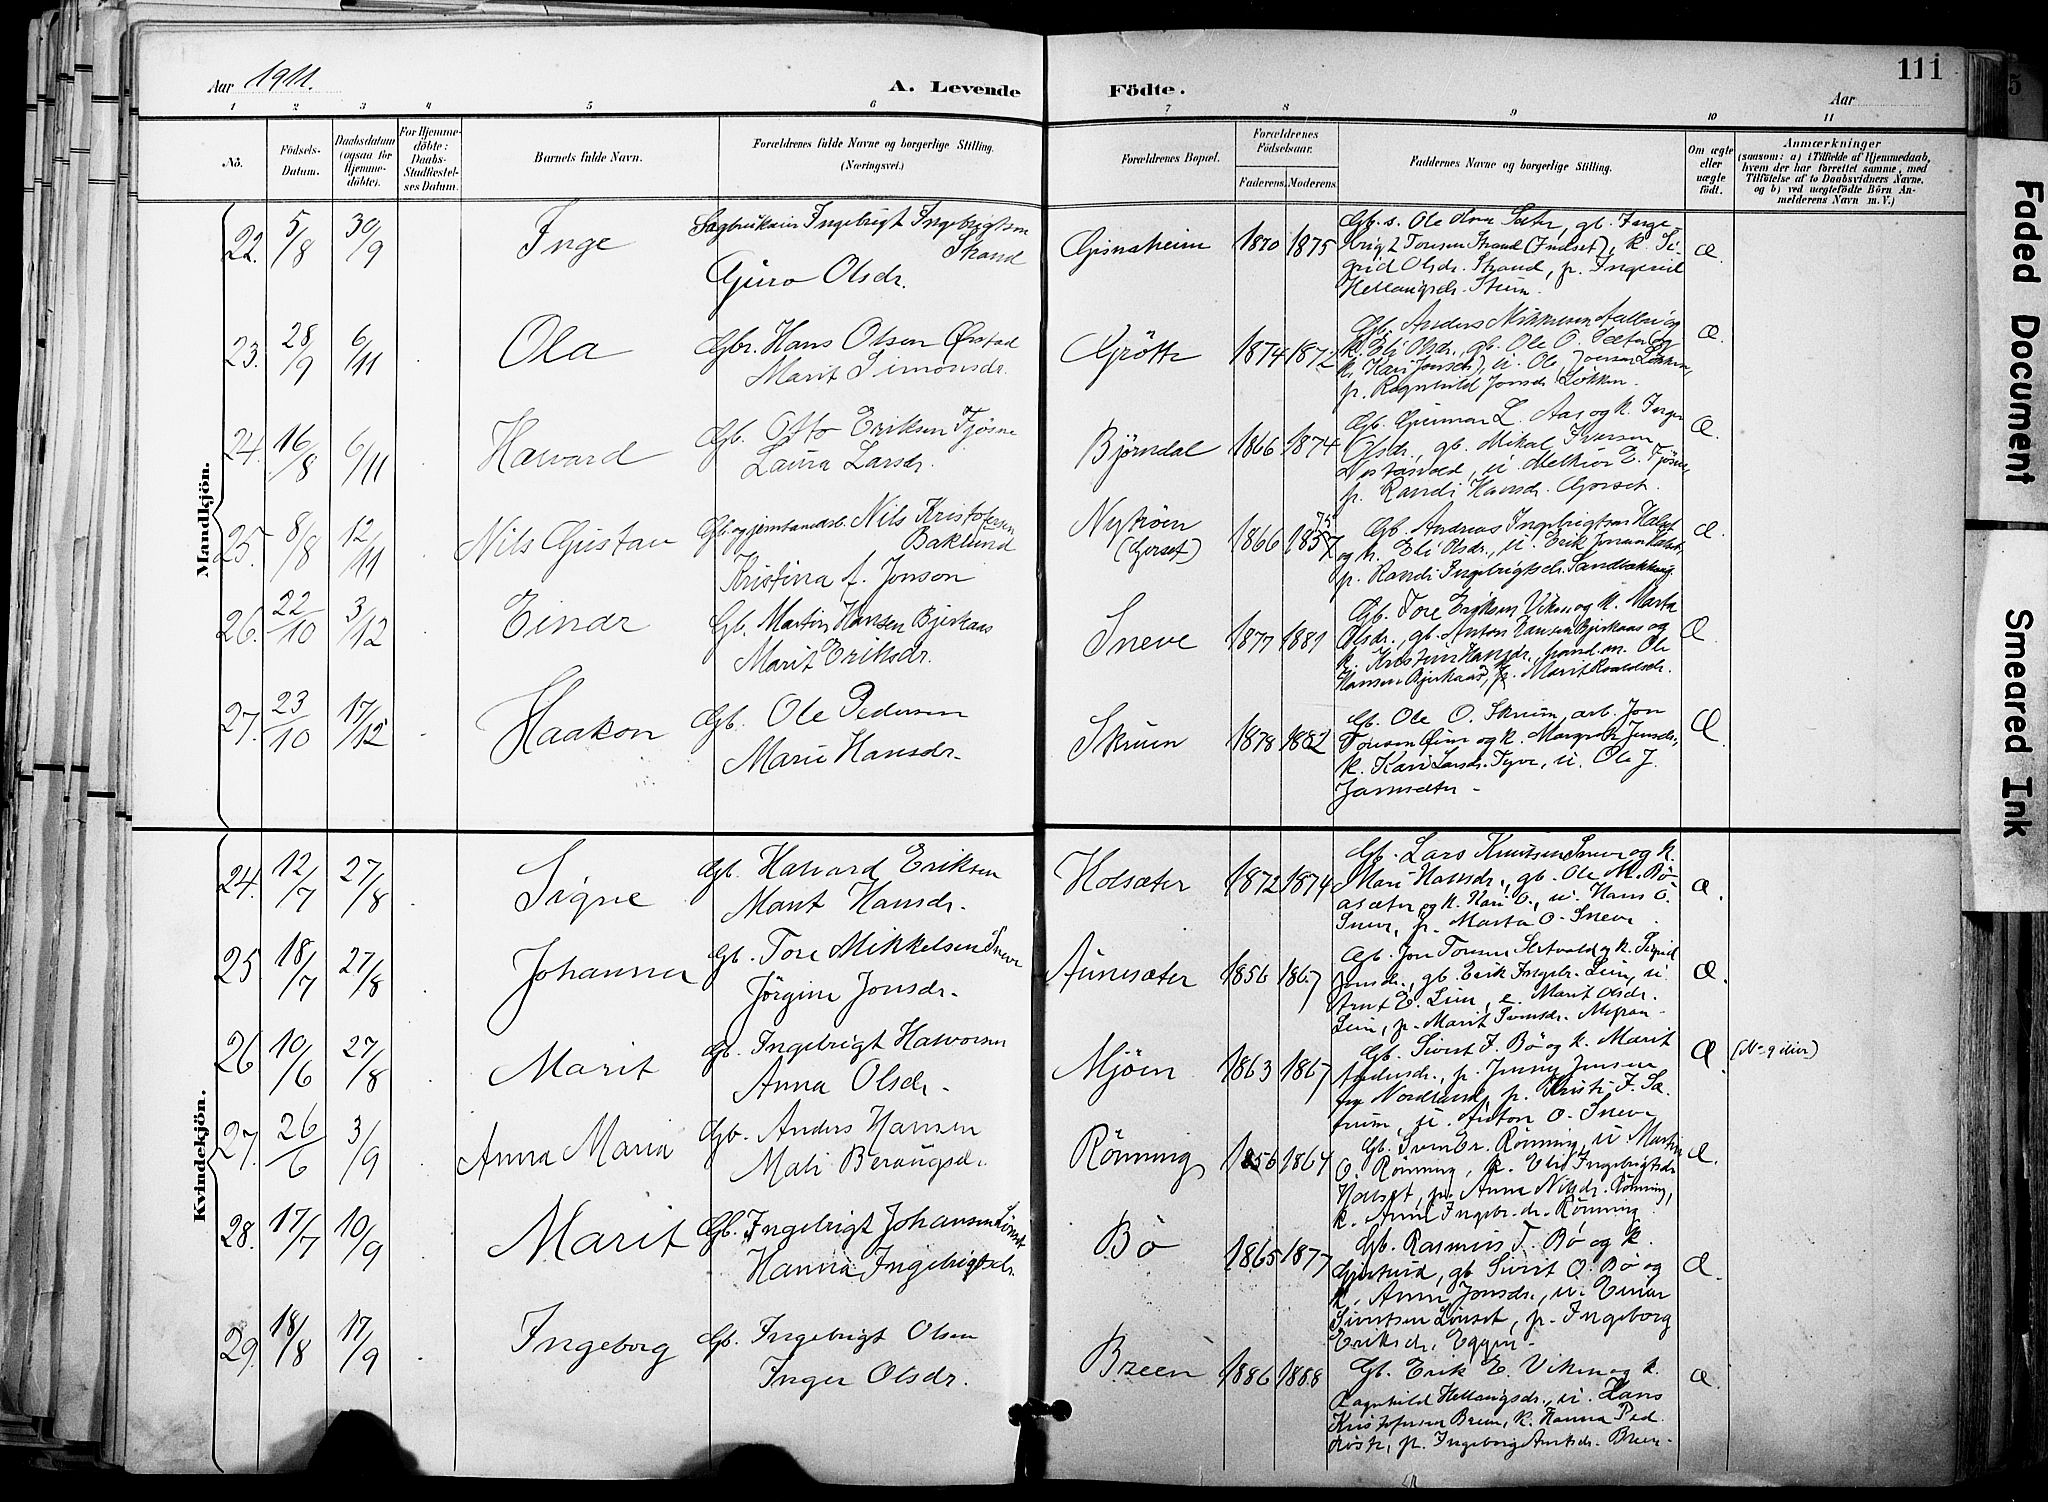 111
Aar 1911.
A. Levende Födte.
Aar
1 2 3 4 5 6 7 8 9 10 11
No.
Födsels-Datum.
Daabsdatum (ogsaa for Hjemme-döbte).
For Hjemme-döbte: Daabs-Stadfæstel-ses Datum.
Barnets fulde Navn.
Forældrenes fulde Navne og borgerlige Stilling. (Næringsvei.)
Forældrenes Bopæl.
Forældrenes Födselsaar.
Faderens. Moderens.
Faddernes Navne og borgerlige Stilling.
Om ægte eller uægte födt.
Anmærkninger
(saasom: a) i Tilfælde af Hjemmedaab,
hvem der har forrettet samme, med
Tilföielse af to Daabsvidners Navne,
og b) ved uegtefödte Börn An-
melderens Navn m. V.)
Mandkjön.
22. 5/8 30/9 Inge
Ingebrigt Ingebrigtsen
Strand
Guro Olsdr.
1870 1875
Gb. s. Ole Sæter, gb. Inge-
brigt Toresen Strand (Indset), k. Si-
grid Olsdr. Strand, p. Ingerid
Hellaugsdr. Stuen.
Æ.
23. 28/9 6/11 Ola
Gbr. Hans Olsen Ørstad
Marit Simonsdr.
Grötte 1874 1872
Gb. Anders og
k. Eli Olsdr., gb. Ole O. Sæter og
k. Kari Jonsdr., u. Ole Joensen Løkken,
p. Ragnhild Jonsdr. Løkken.
Æ.
24. 16/8 6/11 Havard
Gb. Otto Eriksen Fjösne
Laura Larsdr.
Björndal 1866 1874
Gb. Gunnar L. Aas og k. Inger
Olsdr., gb. Mikal Iversen
u. Melkior E. Fjösne,
p. Randi Hansdr. Gorset.
Æ.
25. 8/8 12/11 Nils Gustav
Nils Kristofersen
Baklund
Kristina f. Jonson
Nyströen
(Gorset) 1866
Gb. Andreas Ingebrigtsen Halset
og k. Eli Olsdr., u. Erik
p. Randi Ingebrigtsdr.
Æ.
26. 22/10 3/12 Einar
Gb. Martin Hansen Bjerkaas
Marit Eriksdr.
Sneve 1877 1881
Gb. Tore Eriksen Viken og k. Marta
Olsdr., gb. Anton Hansen Bjerkaas og
k. Kristine Hansdr., Ole
Hansen Bjerkaas, p. Marit
Æ.
27. 23/10 17/12 Haakon
Gb. Ole Pedersen
Marie Hansdr.
Skruen 1878 1882
Gb. Ole O. Skruen, arb. Jon
Toresen og k. Margrete Jensdr.,
k. Kari Larsdr. Tyve, u. Ole J.
Æ.
Kvindekjön.
24. 12/7 27/8 Signe
Gb. Halvard Eriksen
Marit Hansdr.
Holsæter 1872 1874
Gb. Lars Knutsen Sneve og k.
Mari Hansdr., gb. Ole M. Bö-
asæter og k. Kari O., u. Hans O.
Sneve, p. Marta O. Sneve.
Æ.
25 18/7 27/8 Johanna
Gb. Tore Mikkelsen Sneve
Jörgine Jonsdr.
Aunesæter 1856 1867
Gb. Jon Toresen Sletvold og k. Sigrid
Jonsdr., gb. Erik Ingebr. Lien, u.
Arnt E. Lien, e. Marit Olsdr.
Lien, p. Marit Svensdr.
Æ.
26 10/6 27/8 Marit
Gb. Ingebrigt Halvorsen
Anna Olsdr.
Mjöen 1863 1867
Gb. Sivert F. Bö og k. Marit
Andersdr., p. Jenny Jensen
fra Nordland, p. Kristi F. Sæ-
trum, u. Anton O. Sneve
Æ.
27. 26/6 3/9 Anna Maria
Gb. Anders Hansen
Mali Beraugsdr.
Rönning 1856 1864
Gb. Sven Er. Rönning, u. Martin
O. Rönning, k. Eli Ingebrigtsdr.
Halset, p. Anne Nilsdr. Rönning,
k. Anne Ingebr.dr. Rönning.
Æ.
28. 17/7 10/9 Marit
Gb. Ingebrigt Johansen Lönset
Hanna Ingebrigtsdr.
Bö 1865 1877
Gb. Rasmus T. Bö og k.
Gjertrud, gb. Sivert O. Bö og
k. Anne Jonsdr., u. Einar
Sivertsen Lönset, p. Ingeborg
Eriksdr. Eggen.
Æ.
29. 18/8 17/9 Ingeborg
Gb. Ingebrigt Olsen
Inger Olsdr.
Breen 1886 1888
Gb. Erik E. Viken og k.
Ragnhild Hellaugsdr., u. Hans
Kristofersen Breen, k. Hanna Ped
p. Ingeborg Arntsdr. Breen.
Æ.
Faded Document
Smeared Ink